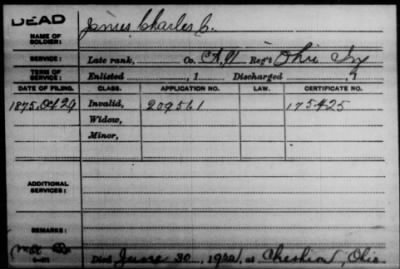 DEAD
NAME OF SOLDIER: Charles C.
SERVICE: Late rank, Co. Reg't Ohio Inf
TERM OF SERVICE: Enlisted , 1 Discharged , 1
DATE OF FILING. CLASS. APPLICATION NO. LAW. CERTIFICATE NO.
1875, Oct 29 Invalid, 209561 175425
Widow,
Minor,
ADDITIONAL SERVICES:
REMARKS:
Died June 30, at Ohio